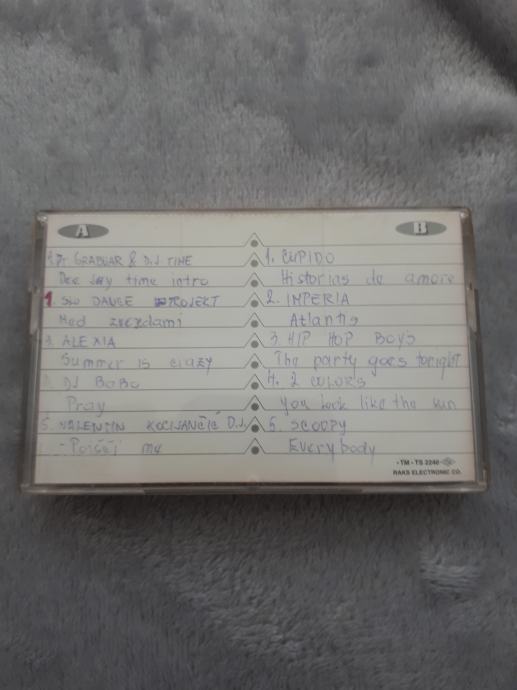 A
GRABNAR & DJ TINE
Dee Jay time intro
1. SLO DANCE PROJEKT
Med zvezdami
3. ALEXIA
Summer is crazy
DJ BoBo
Pray
5. VALENTIN KOCIJANČIČ D.J.
- Poišči me
B
1. CUPIDO
Historias de amore
2. IMPERIA
Atlantis
3. HIP HOP Boy's
The party goes tonight
4. 2 COLOR'S
You look like the sun
5. SCOOPY
Everybody
• TM • TS 2246
RAKS ELECTRONIC CO.